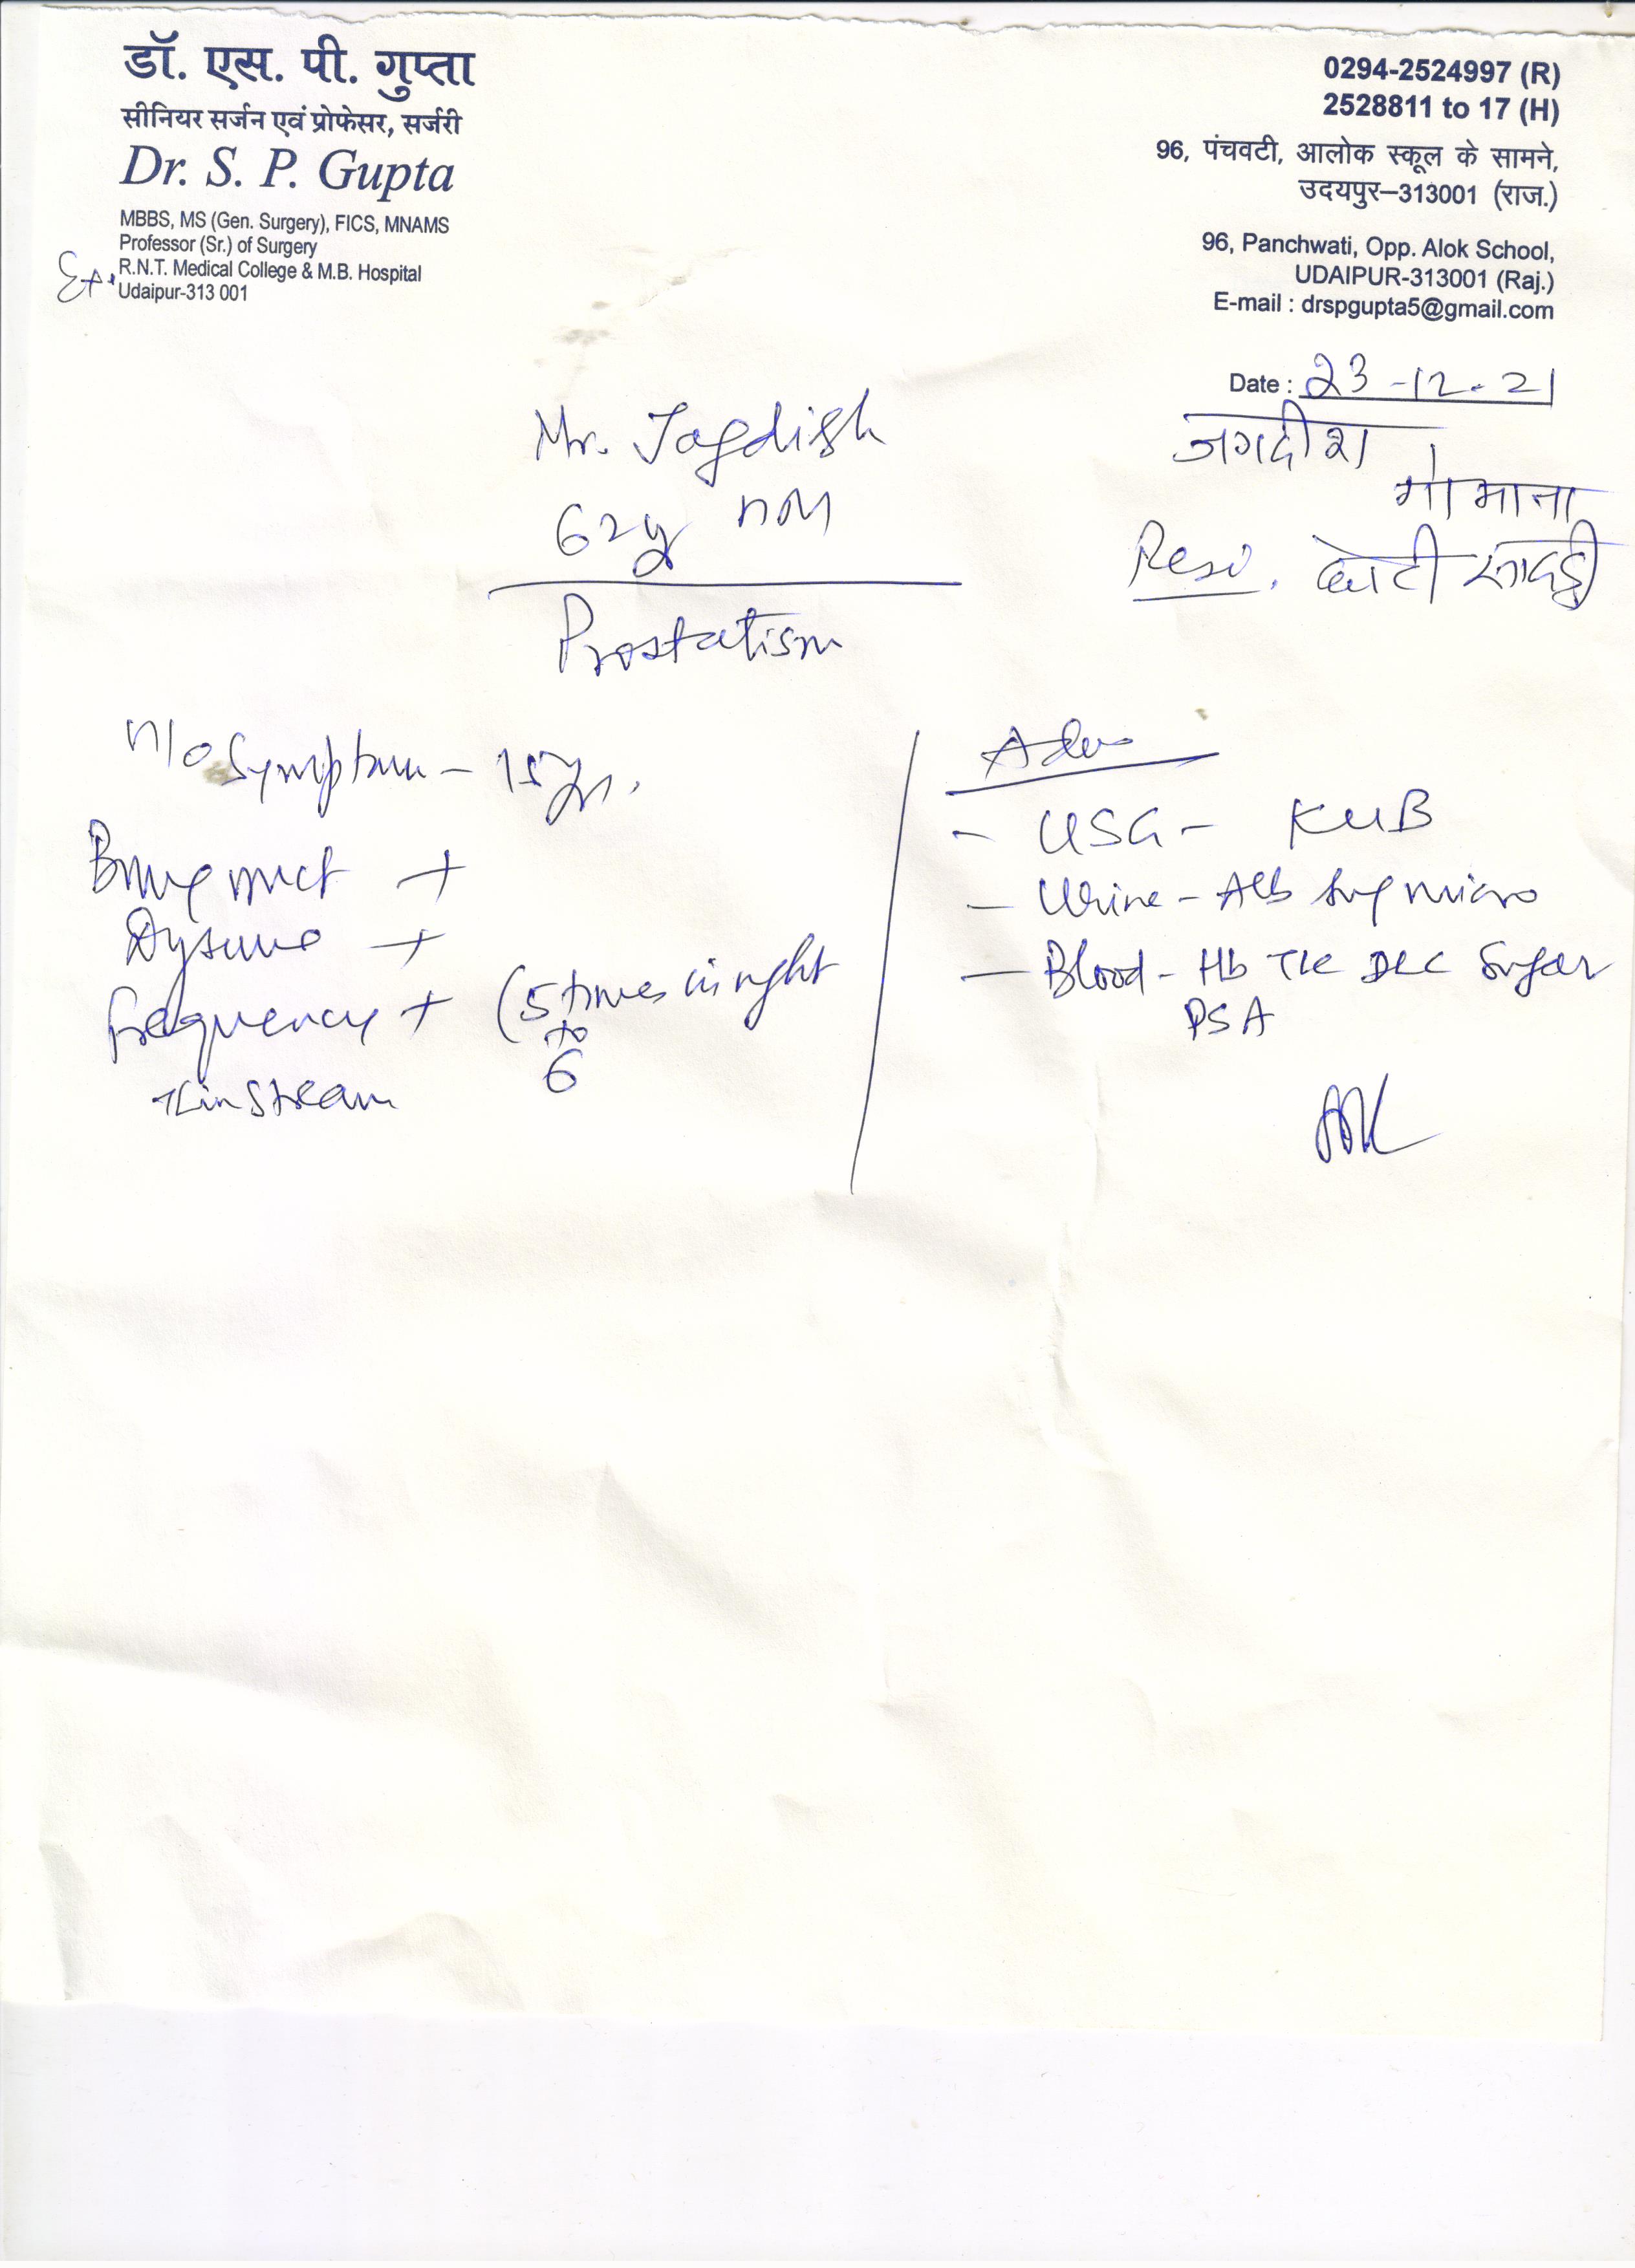 डॉ. एस. पी. गुप्ता
सीनियर सर्जन एवं प्रोफेसर, सर्जरी
Dr. S. P. Gupta
MBBS, MS (Gen. Surgery), FICS, MNAMS
Professor (Sr.) of Surgery
Ex. R.N.T. Medical College & M.B. Hospital
Udaipur-313 001
0294-2524997 (R)
2528811 to 17 (H)
96, पंचवटी, आलोक स्कूल के सामने,
उदयपुर–313001 (राज.)
96, Panchwati, Opp. Alok School,
UDAIPUR-313001 (Raj.)
E-mail : drspgupta5@gmail.com
Date : 23-12-21
जगदीश
गोमाना
Resi. छोटी सादड़ी
Mr. Jagdish
62y
Prostatism
H/o Symptom - 15 yr.
Burning mict +
Dysuria +
frequency + (5 times in night
to
6
Thin stream
Adv
- USG - KUB
- Urine - Alb Sug micro
- Blood - Hb TLC DLC Sugar
PSA